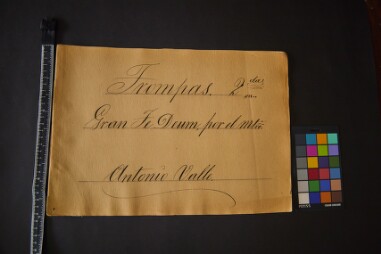 Trompas, 2 das
en
Gran Te Deum, por el mtro
Antonio Valle